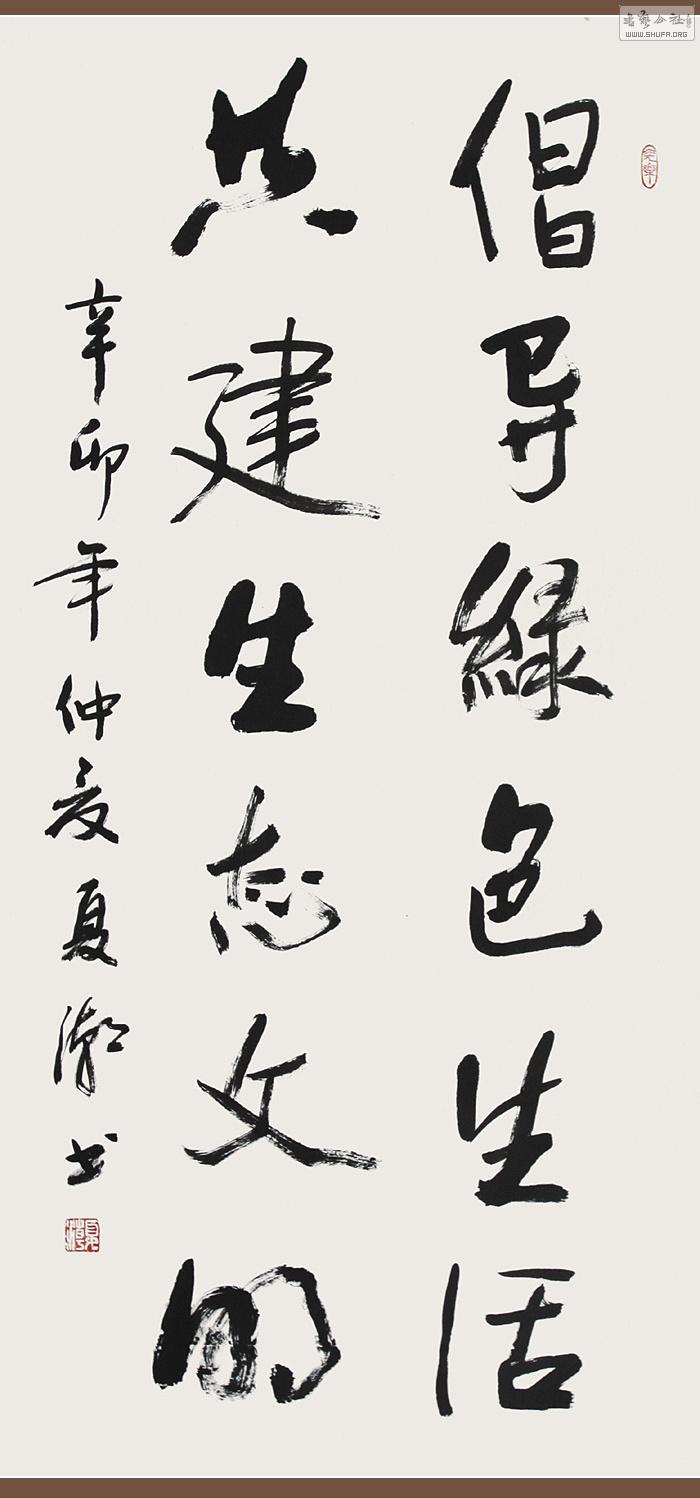 倡导緑色生活
共建生态文明
辛卯年仲夏夏潮书
书艺公社
WWW.SHUFA.ORG